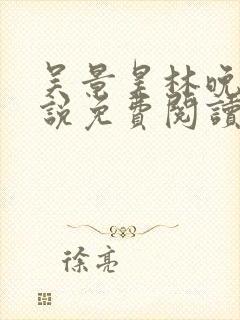 吴景星林晚
說免費閱讀
徐亮